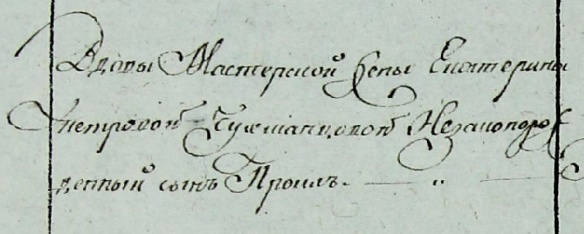 Вдовы Мастерской жены Екатерины
Петровой Чужманцовой Незаконорож
денный сынъ Троилъ. — „ —